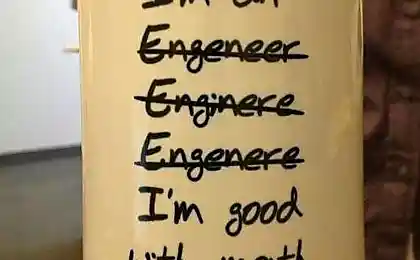 I'm an
Engeneer
Enginere
Engenere
I'm good
with math